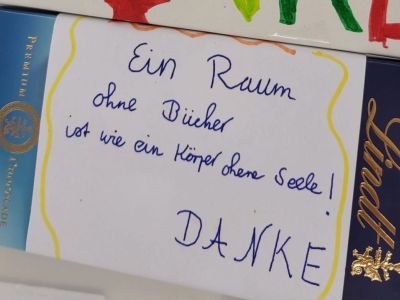 PREMIUM
CHOCOLADE
Ein Raum
ohne Bücher
ist wie ein Körper ohene Seele!
DANKE
Lindt